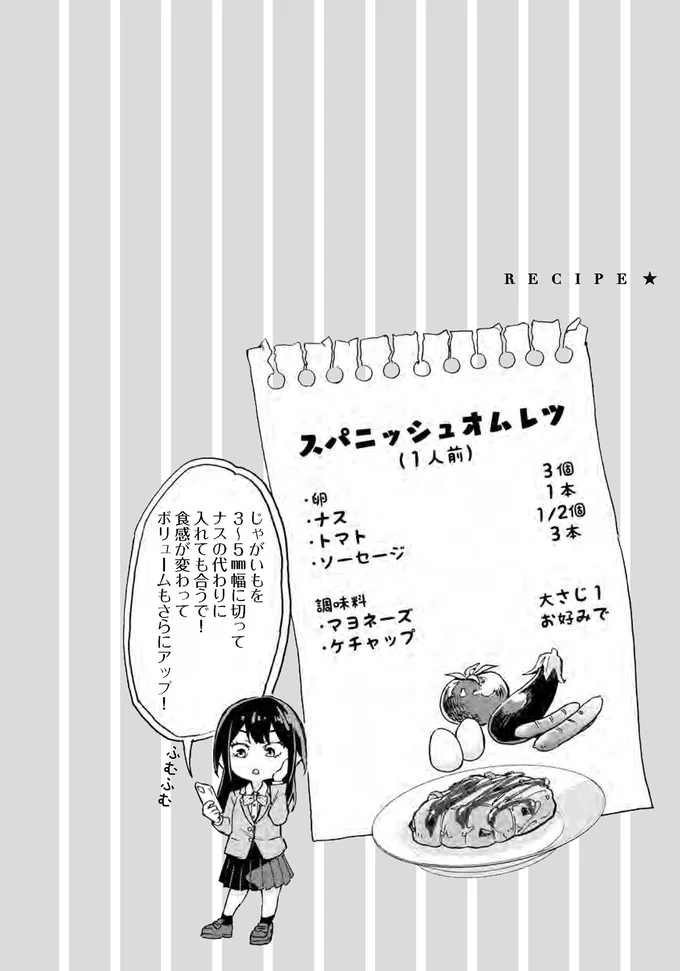 RECIPE★
スパニッシュオムレツ
(1人前)
・卵 3個
・ナス 1本
・トマト 1/2個
・ソーセージ 3本
調味料
・マヨネーズ 大さじ1
・ケチャップ お好みで
じゃがいもを
3〜5㎜幅に切って
ナスの代わりに
入れても合うで!
食感が変わって
ボリュームもさらにアップ!
ふむふむ